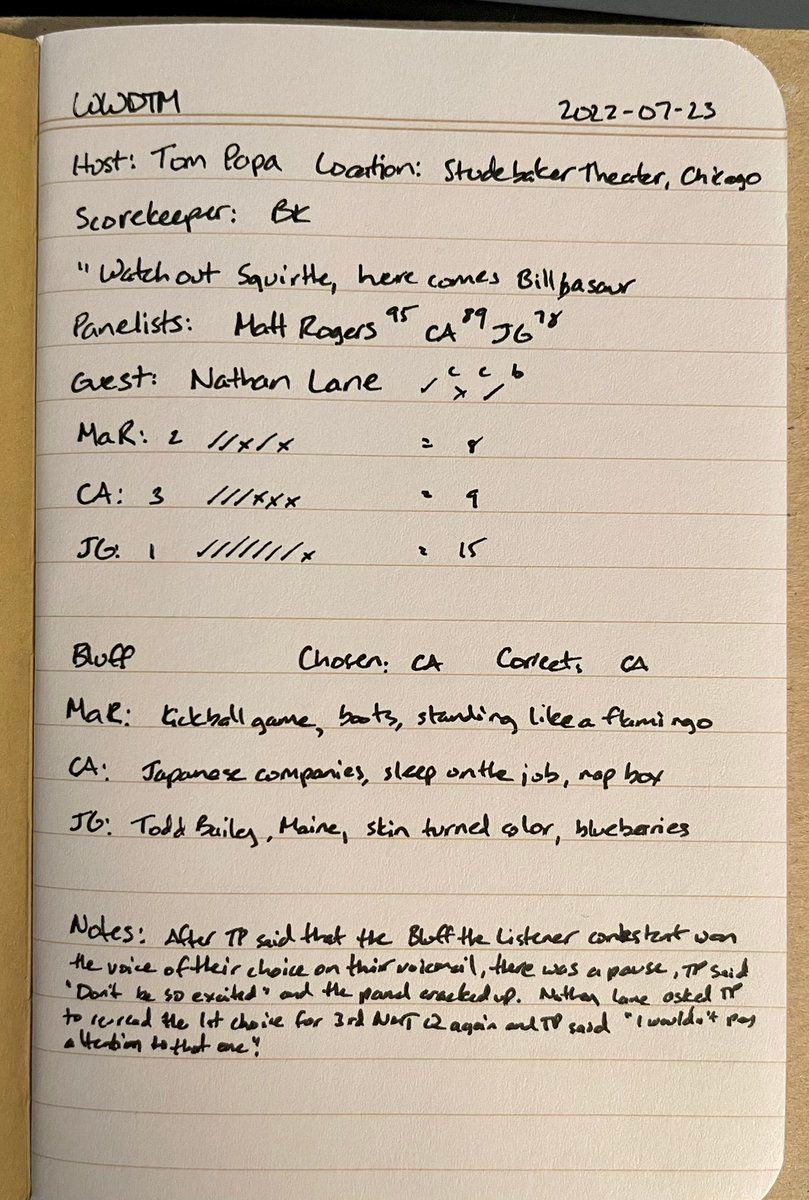 WWDTM 2022-07-23
Host: Tom Papa Location: Studebaker Theater, Chicago
Scorekeeper: BK
"Watch out Squirtle, here comes Billbasaur
Panelists: Matt Rogers 95 CA 89 JG 78
Guest: Nathan Lane ✓ c x c ✓ b
MaR: 2 //x/x = 8
CA: 3 ///xxx = 9
JG: 1 ///////x = 15
Bluff Chosen: CA Correct: CA
MaR: Kickball game, boots, standing like a flamingo
CA: Japanese companies, sleep on the job, nap box
JG: Todd Bailey, Maine, skin turned color, blueberries
Notes: After TP said that the Bluff the Listener contestant won
the voice of their choice on their voicemail, there was a pause, TP said
"Don't be so excited" and the panel cracked up. Nathan Lane asked TP
to reread the 1st choice for 3rd NMJ Q again and TP said "I wouldn't pay
attention to that one".